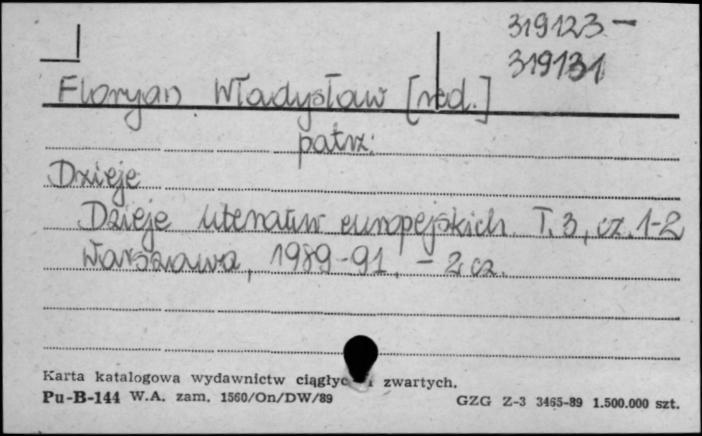 319123 -
319131
Floryan Władysław [red.]
patrz:
Dzieje
Dzieje literatur europejskich. T. 3, cz. 1-2
Warszawa, 1989-91. - 2 cz.
Karta katalogowa wydawnictw zwartych.
Pu-B-144 W.A. zam. 1560/On/DW/89
GZG Z-3 3465-89 1.500.000 szt.